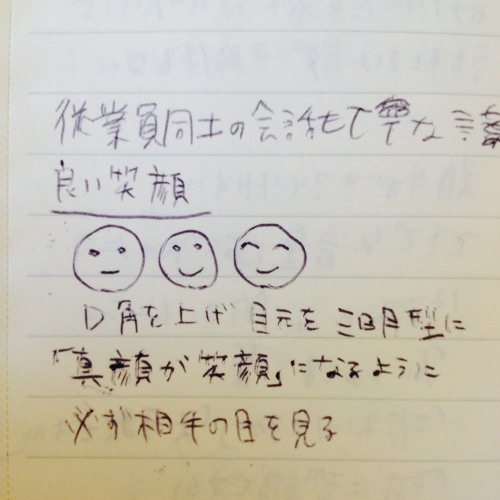 従業員同士の会話も丁寧な言葉
良い笑顔
口角を上げ 目元を三日月型に
「真顔が笑顔」になるように
必ず相手の目を見る